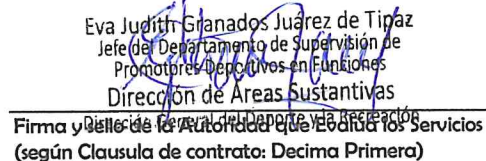 Eva Judith Granados Juárez de Tipaz
Jefe del Departamento de Supervisión de
Promotores Deportivos en Funciones
Dirección de Áreas Sustantivas
Dirección General del Deporte y la Recreación
Firma y sello de la Autoridad que Evalúa los Servicios
(según Clausula de contrato: Decima Primera)